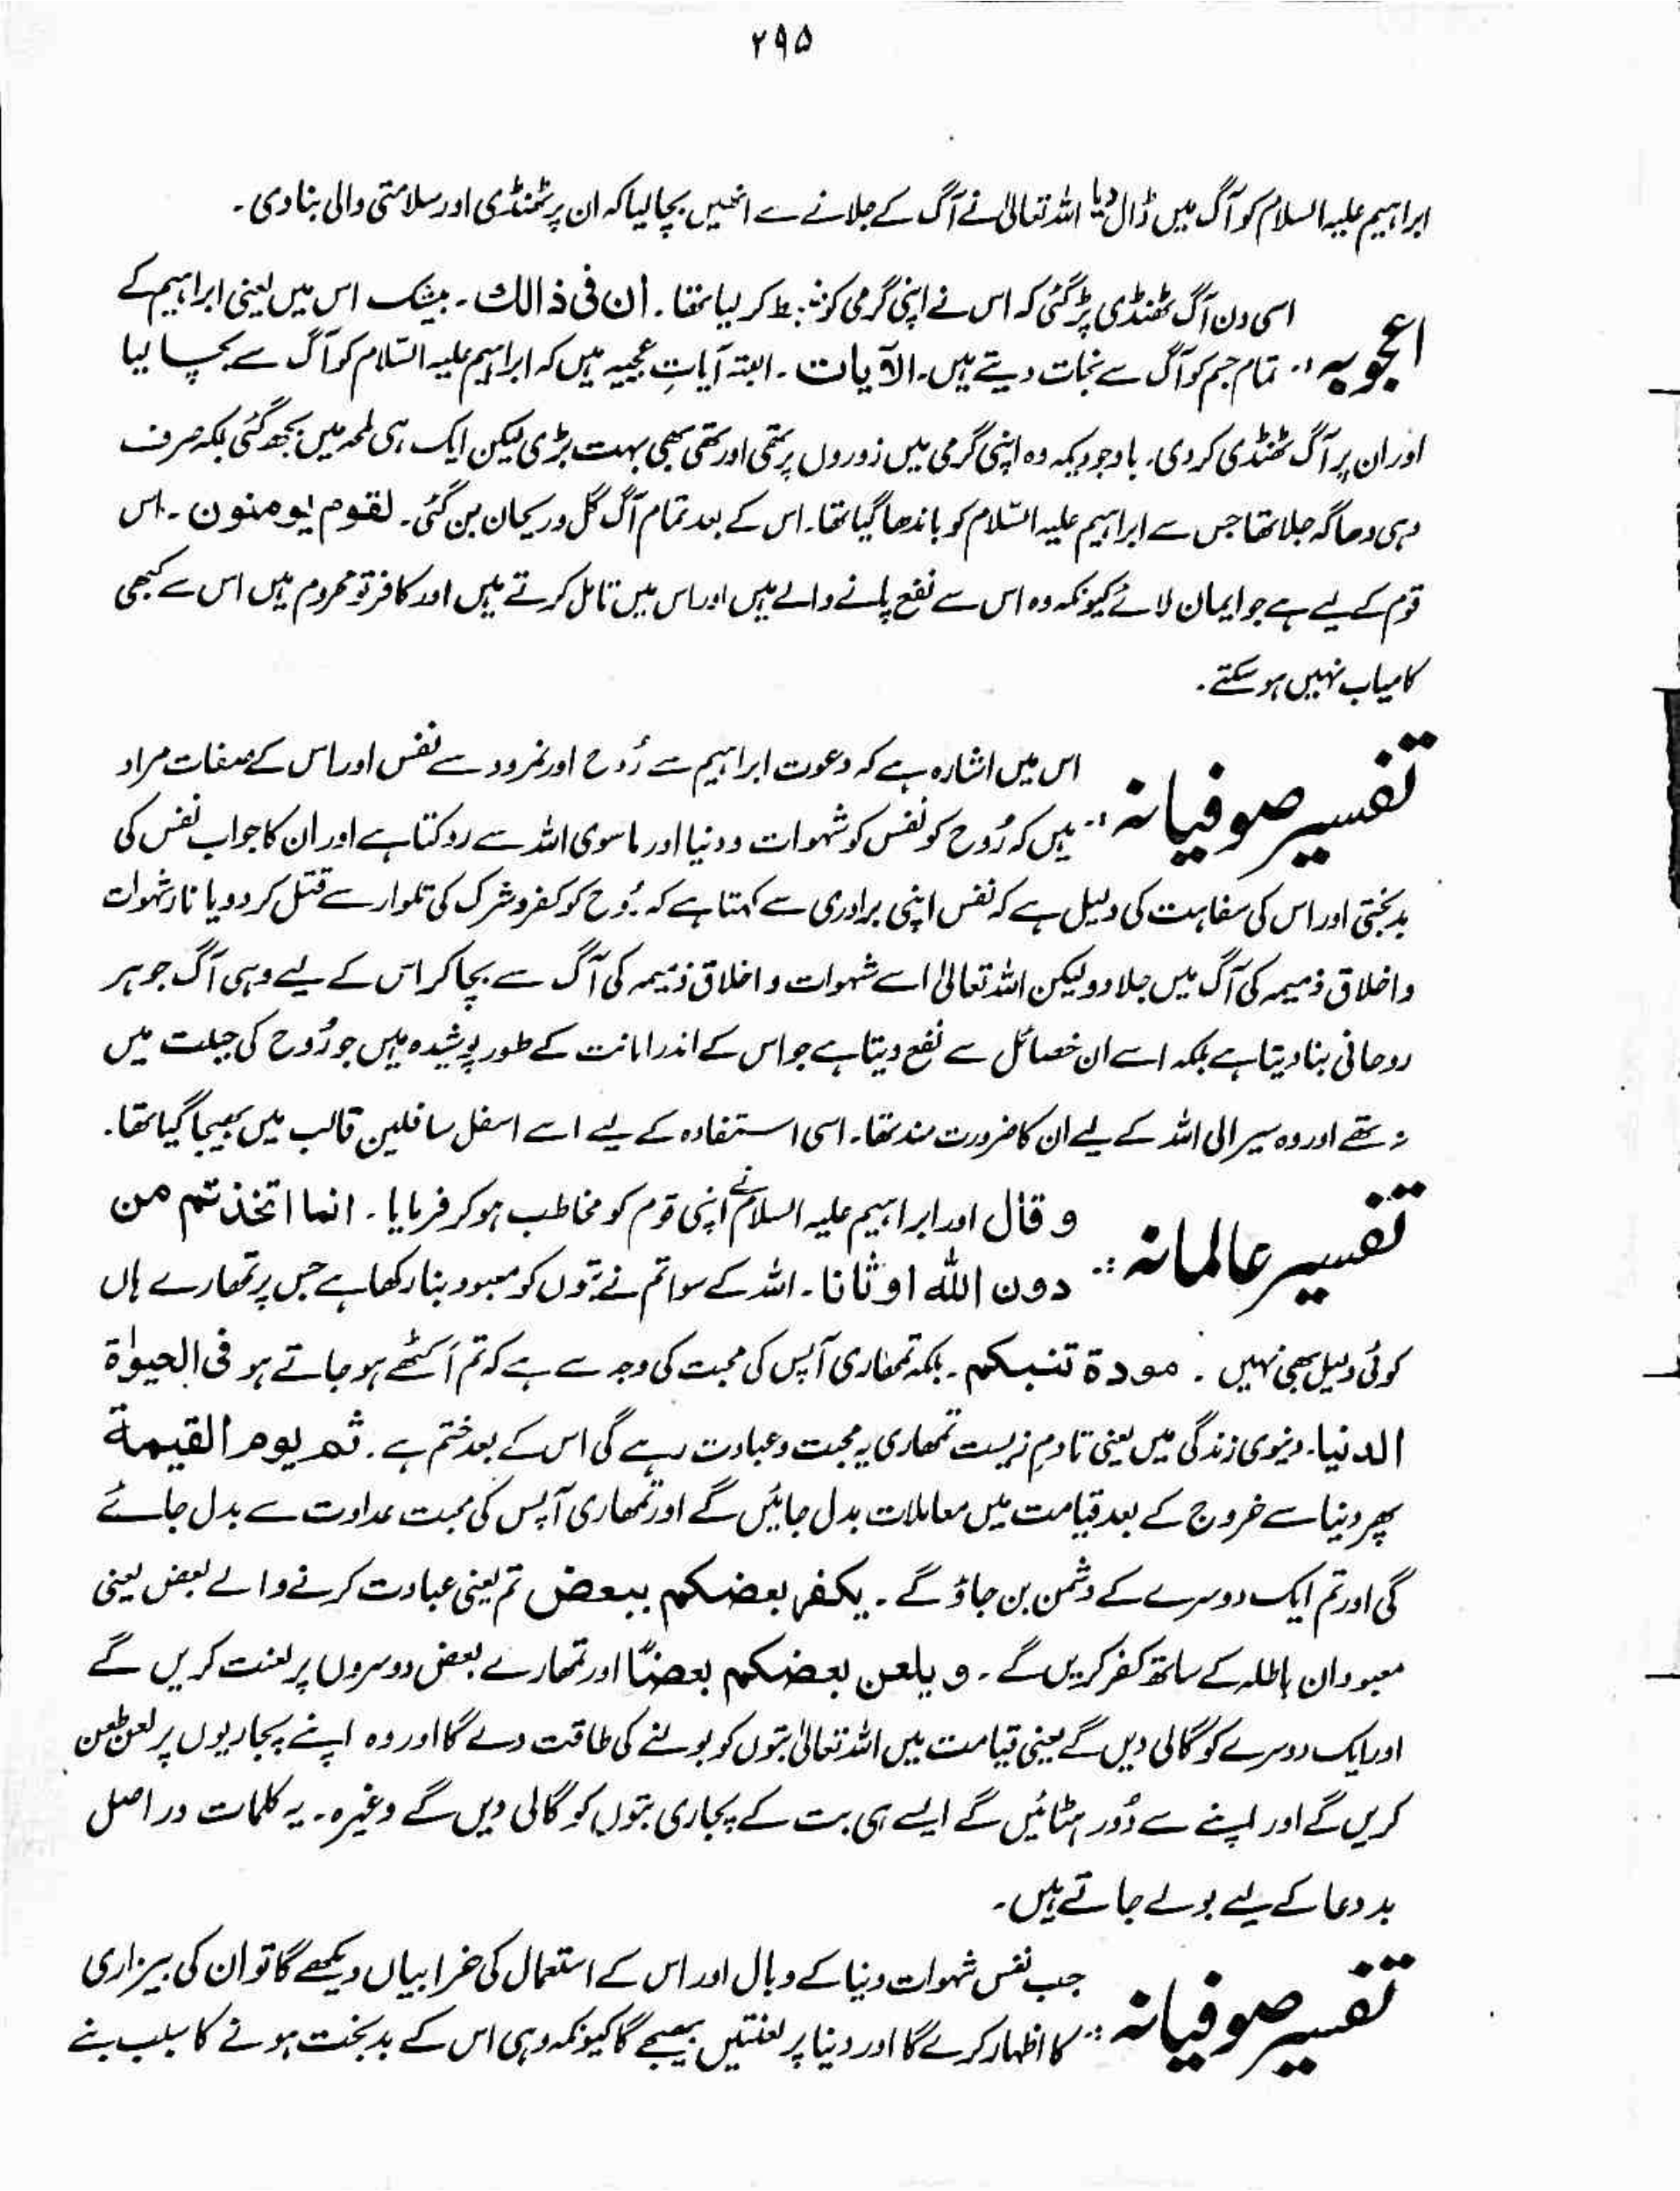 ۲۹۵
ابراہیم علیہ السلام کو آگ میں ڈال دیا اللہ تعالیٰ نے آگ کے جلانے سے انھیں بچا لیا کہ ان پر ٹھنڈی اور سلامتی والی بنا دی ۔
اسی دن آگ ٹھنڈی پڑ گئی کہ اس نے اپنی گرمی کو ضبط کر لیا تھا ۔ ان فی ذالك ۔ بیشک اس میں یعنی ابراہیم کے
اعجوبہ :: تمام جسم کو آگ سے نجات دیتے ہیں ۔ الآیات ۔ البتہ آیاتِ عجیبہ ہیں کہ ابراہیم علیہ السّلام کو آگ سے بچا لیا
اور ان پر آگ ٹھنڈی کر دی ۔ باوجودیکہ وہ اپنی گرمی میں زوروں پر تھی اور تھی بھی بہت بڑی لیکن ایک ہی لمحہ میں بجھ گئی بلکہ صرف
وہی دھاگہ جلا تھا جس سے ابراہیم علیہ السّلام کو باندھا گیا تھا ۔ اس کے بعد تمام آگ گل و ریحان بن گئی ۔ لقوم یومنون ۔ اس
قوم کے لیے ہے جو ایمان لائے کیونکہ وہ اس سے نفع پانے والے ہیں اور اس میں تامل کرتے ہیں اور کافر تو محروم ہیں اس سے کبھی
کامیاب نہیں ہو سکتے ۔
اس میں اشارہ ہے کہ دعوت ابراہیم سے رُوح اور نمرود سے نفس اور اس کے صفات مراد
تفسیر صوفیانہ :: ہیں کہ رُوح کو نفس کو شہوات و دنیا اور ما سوی اللہ سے روکتا ہے اور ان کا جواب نفس کی
بدبختی اور اس کی سفاہت کی دلیل ہے کہ نفس اپنی برادری سے کہتا ہے کہ رُوح کو کفر و شرک کی تلوار سے قتل کر دو یا نارِ شہوات
و اخلاق ذمیمہ کی آگ میں جلا دو لیکن اللہ تعالیٰ اسے شہوات و اخلاق ذمیمہ کی آگ سے بچا کر اس کے لیے وہی آگ جوہر
روحانی بنا دیتا ہے بلکہ اسے ان خصائل سے نفع دیتا ہے جو اس کے اندر امانت کے طور پوشیدہ ہیں جو رُوح کی جبلت میں
نہ تھے اور وہ سیر الی اللہ کے لیے ان کا ضرورت مند تھا ۔ اسی استفادہ کے لیے اسے اسفل سافلین قالب میں بھیجا گیا تھا ۔
و قال اور ابراہیم علیہ السلام نے اپنی قوم کو مخاطب ہو کر فرمایا ۔ انما اتخذتم من
تفسیر عالمانہ :: دون اللّٰہ اوثانا ۔ اللہ کے سوا تم نے بتوں کو معبود بنا رکھا ہے جس پر تمھارے ہاں
کوئی دلیل بھی نہیں ۔ مودۃ تنبیکم ۔ بلکہ تمھاری آپس کی محبت کی وجہ سے ہے کہ تم اکٹھے ہو جاتے ہو فی الحیوٰۃ
الدنیا ۔ دنیوی زندگی میں یعنی تادمِ زیست تمھاری یہ محبت و عبادت رہے گی اس کے بعد ختم ہے ۔ ثم یوم القیمۃ
پھر دنیا سے خروج کے بعد قیامت میں معاملات بدل جائیں گے اور تمھاری آپس کی محبت عداوت سے بدل جائے
گی اور تم ایک دوسرے کے دشمن بن جاؤ گے ۔ یکفر بعضکم ببعض تم یعنی عبادت کرنے والے بعض یعنی
معبودان باطلہ کے ساتھ کفر کریں گے ۔ و یلعن بعضکم بعضًا اور تمھارے بعض دوسروں پر لعنت کریں گے
اور ایک دوسرے کو گالی دیں گے یعنی قیامت میں اللہ تعالیٰ بتوں کو بولنے کی طاقت دے گا اور وہ اپنے پجاریوں پر لعن طعن
کریں گے اور اپنے سے دُور ہٹائیں گے ایسے ہی بت کے پجاری بتوں کو گالی دیں گے وغیرہ ۔ یہ کلمات در اصل
بد دعا کے لیے بولے جاتے ہیں ۔
جب نفس شہوات دنیا کے وبال اور اس کے استعمال کی خرابیاں دیکھے گا تو ان کی بیزاری
تفسیر صوفیانہ :: کا اظہار کرے گا اور دنیا پر لعنتیں بھیجے گا کیونکہ وہی اس کے بدبخت ہونے کا سبب بنے